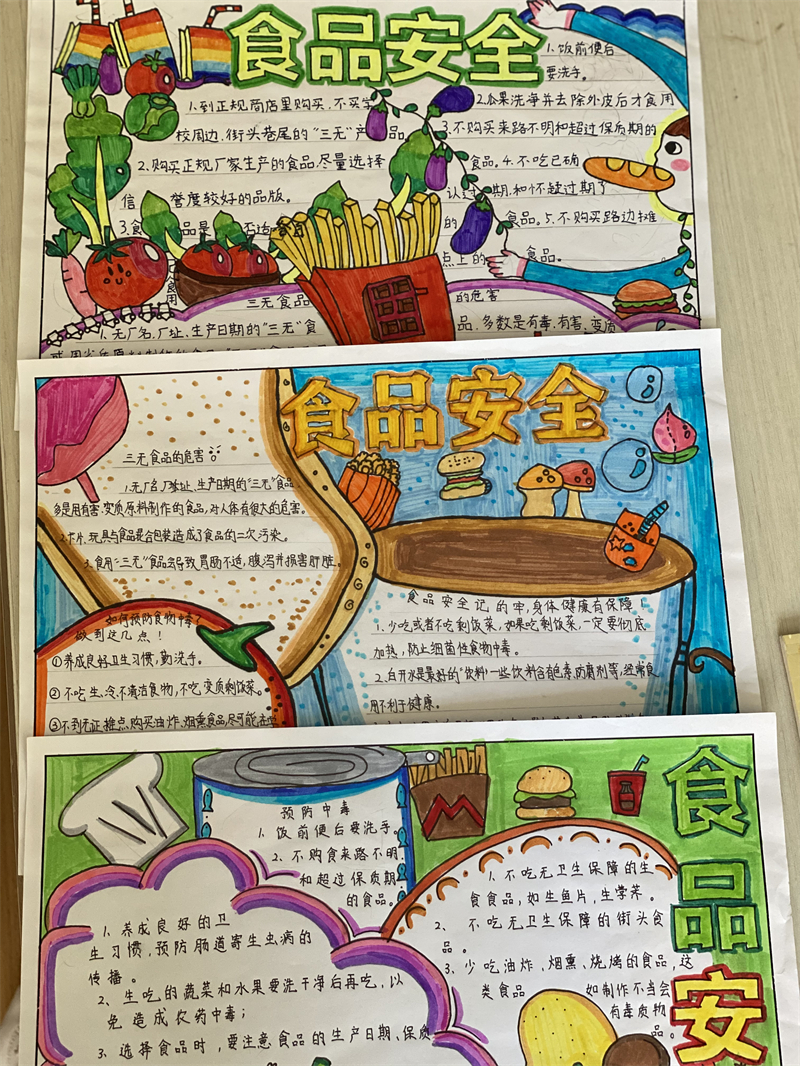 食品安全
1.到正规商店里购买,不买学
校周边、街头巷尾的“三无”产品。
2.购买正规厂家生产的食品,尽量选择
信誉度较好的品版。
1.饭前便后
要洗手。
2.瓜果洗海并去除外皮后才食用
3.不购买来路不明和超过保质期的
食品。4.不吃已确
认过期和怀疑过期了
的食品。5.不购买路边摊
点上的食品。
三无食品的危害
1.无厂名,厂址、生产日期的“三无”食
品,多数是有毒、有害、变质
食品安全
三无食品的危害
1.无厂名,厂址、生产日期的“三无”食品
多是用有害、变质原料制作的食品,对人体有很大的危害。
2.卡片、玩具与食品混合包装造成了食品的二次污染。
3.食用“三无”食品会导致胃肠不适,腹泻并损害肝脏。
如何预防食物中毒?
做到这几点!
①养成良好卫生习惯,勤洗手。
②不吃生、冷、不清洁食物,不吃变质剩饭菜。
③不到无证摊点购买油炸、烟熏食品,尽可能在
食品安全记的牢,身体健康有保障!
1.少吃或者不吃剩饭菜,如果吃剩饭菜,一定要彻底
加热,防止细菌性食物中毒。
2.白开水是最好的“饮料”一些饮料含有色素、防腐剂等,经常食
用不利于健康。
食品安
预防中毒
1、饭前便后要洗手。
2、不购食来路不明
和超过保质期
的食品。
1、养成良好的卫
生习惯,预防肠道寄生虫病的
传播。
2、生吃的蔬菜和水果要洗干净后再吃,以
免造成农药中毒;
3、选择食品时,要注意食品的生产日期、保质
1、不吃无卫生保障的生
食食品,如生鱼片,生学荠。
2、不吃无卫生保障的街头食
品。
3、少吃油炸、烟熏、烧烤的食品,这
类食品如制作不当会
有毒质物
品。